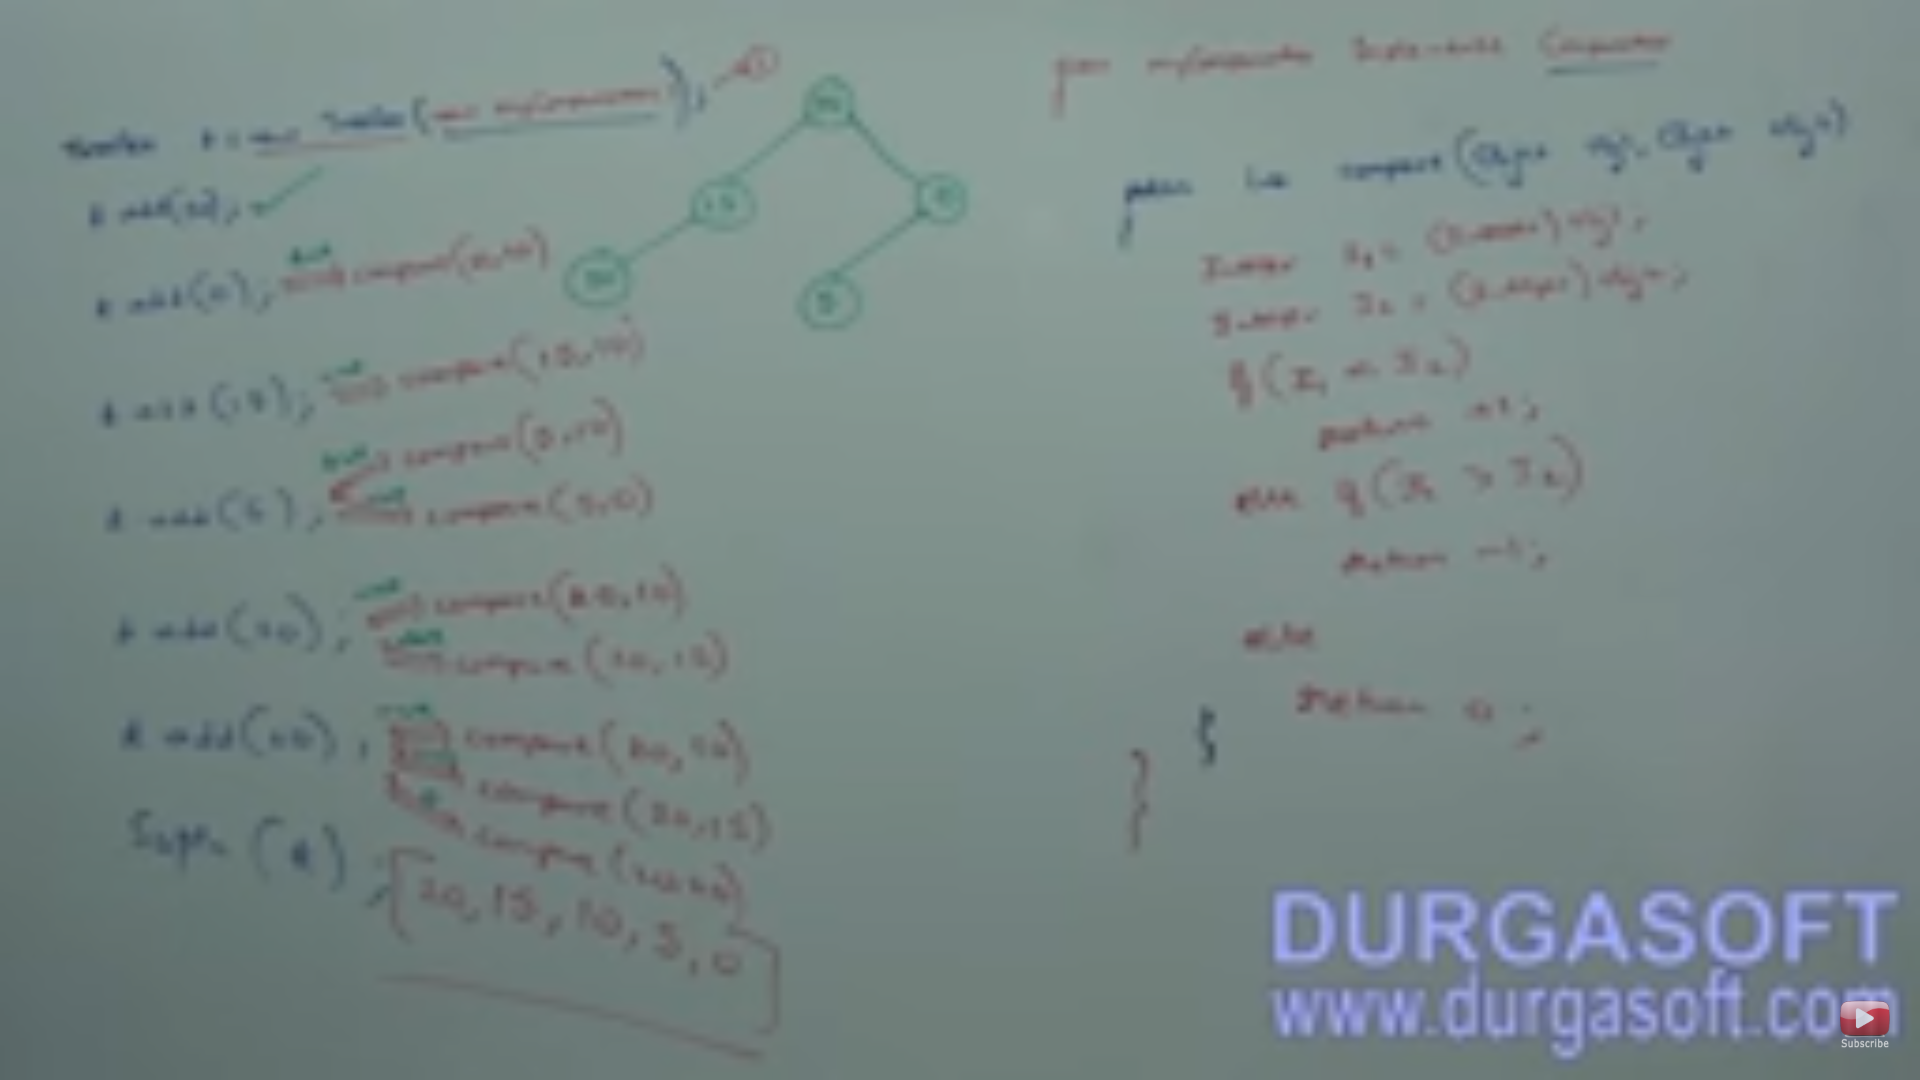 TreeSet t = new TreeSet(new MyComparator()); →①
t.add(10);
t.add(0); +ve compare(0,10)
t.add(15); -ve compare(15,10)
+ve compare(5,10)
t.add(5); -ve compare(5,0)
-ve compare(20,10)
t.add(20); -ve compare(20,15)
t.add(20); -ve compare(20,10)
compare(20,15)
compare(20,20)
S.o.pln(t);
[20, 15, 10, 5, 0]
10
15
0
20
5
class MyComparator implements Comparator
{
public int compare(Object obj1, Object obj2)
{
Integer I1 = (Integer)obj1;
Integer I2 = (Integer)obj2;
if(I1 < I2)
return +1;
else if(I1 > I2)
return -1;
else
return 0;
}
}
DURGASOFT
www.durgasoft.com
Subscribe